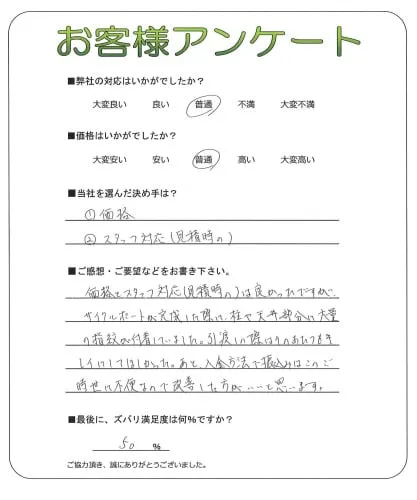 お客様アンケート
■弊社の対応はいかがでしたか？
大変良い 良い 普通 不満 大変不満
■価格はいかがでしたか？
大変安い 安い 普通 高い 大変高い
■当社を選んだ決め手は？
① 価格
② スタッフ対応(見積時の)
■ご感想・ご要望などをお書き下さい。
価格とスタッフ対応(見積時の)は良かったですが、
サイクルポートが完成した際に、柱や天井部分に大量
の指紋が付着していました。引渡しの際は
してほしかった。あと、入金方法で振込みはこのご
時世に不便なので改善した方がいいと思います。
■最後に、ズバリ満足度は何%ですか？
50 %
ご協力頂き、誠にありがとうございました。